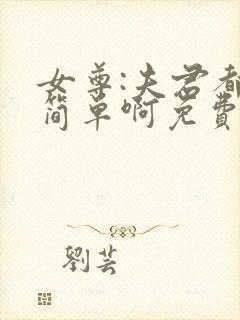 女尊:夫君都
简单啊免費
劉芸